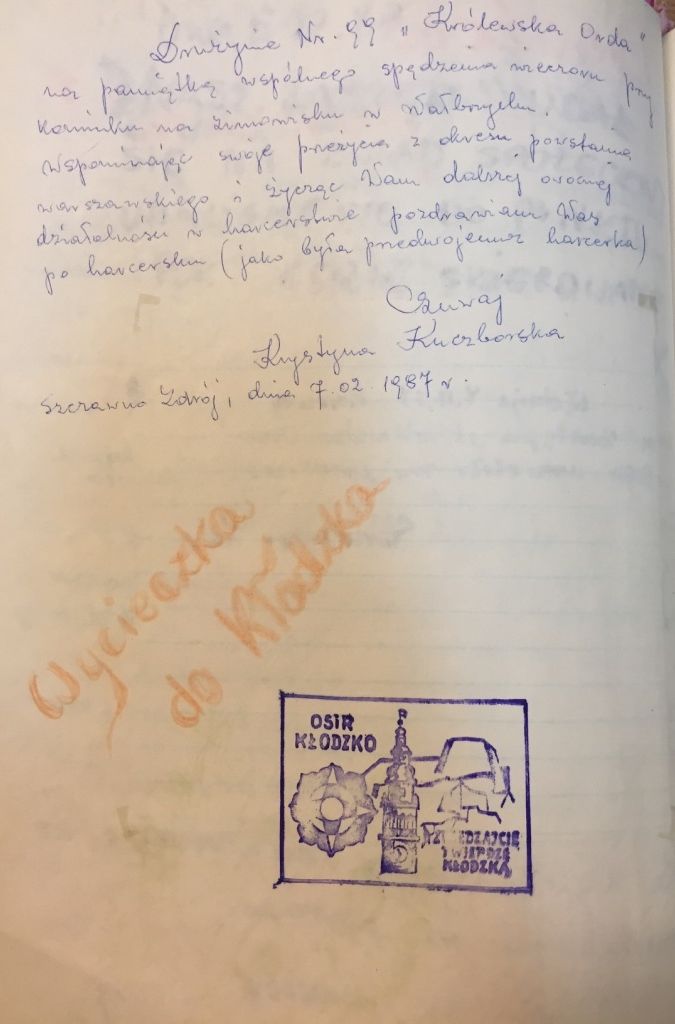 Drużynie Nr. 99 „Królewska Orda"
na pamiątkę wspólnego spędzenia wieczoru przy
kominku na zimowisku w Wałbrzychu.
Wspominając swoje przeżycia z okresu powstania
warszawskiego i życząc Wam dalszej owocnej
działalności w harcerstwie pozdrawiam Was
po harcersku (jako była przedwojenna harcerka)
Czuwaj
Krystyna Kuczborska
Szczawno Zdrój, dnia 7.02.1987 r.
Wycieczka
do Kłodzka
OSiR
KŁODZKO
ZWIEDZAJCIE
TWIERDZĘ
KŁODZKĄ